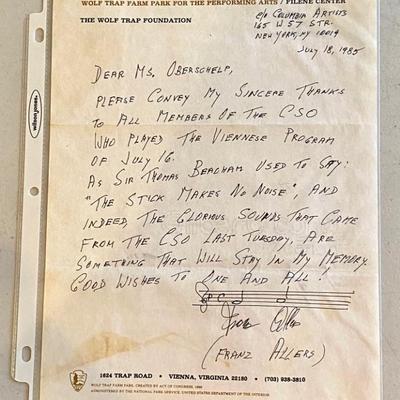 WOLF TRAP FARM PARK FOR THE PERFORMING ARTS / FILENE CENTER
THE WOLF TRAP FOUNDATION
c/o COLUMBIA ARTISTS
165 W 57 STR.
NEW YORK, NY 10019
JULY 18, 1985
DEAR MS. OBERSCHELP,
PLEASE CONVEY MY SINCERE THANKS
TO ALL MEMBERS OF THE CSO
WHO PLAYED THE VIENNESE PROGRAM
OF JULY 16.
AS SIR THOMAS BEACHAM USED TO SAY:
"THE STICK MAKES NO NOISE", AND
INDEED, THE GLORIOUS SOUNDS THAT CAME
FROM THE CSO LAST TUESDAY, ARE
SOMETHING THAT WILL STAY IN MY MEMORY.
GOOD WISHES TO ONE AND ALL!
Franz Allers
(FRANZ ALLERS)
1624 TRAP ROAD • VIENNA, VIRGINIA 22180 • (703) 938-3810
WOLF TRAP FARM PARK, CREATED BY ACT OF CONGRESS, 1966
ADMINISTERED BY THE NATIONAL PARK SERVICE, UNITED STATES DEPARTMENT OF THE INTERIOR
wilson jones